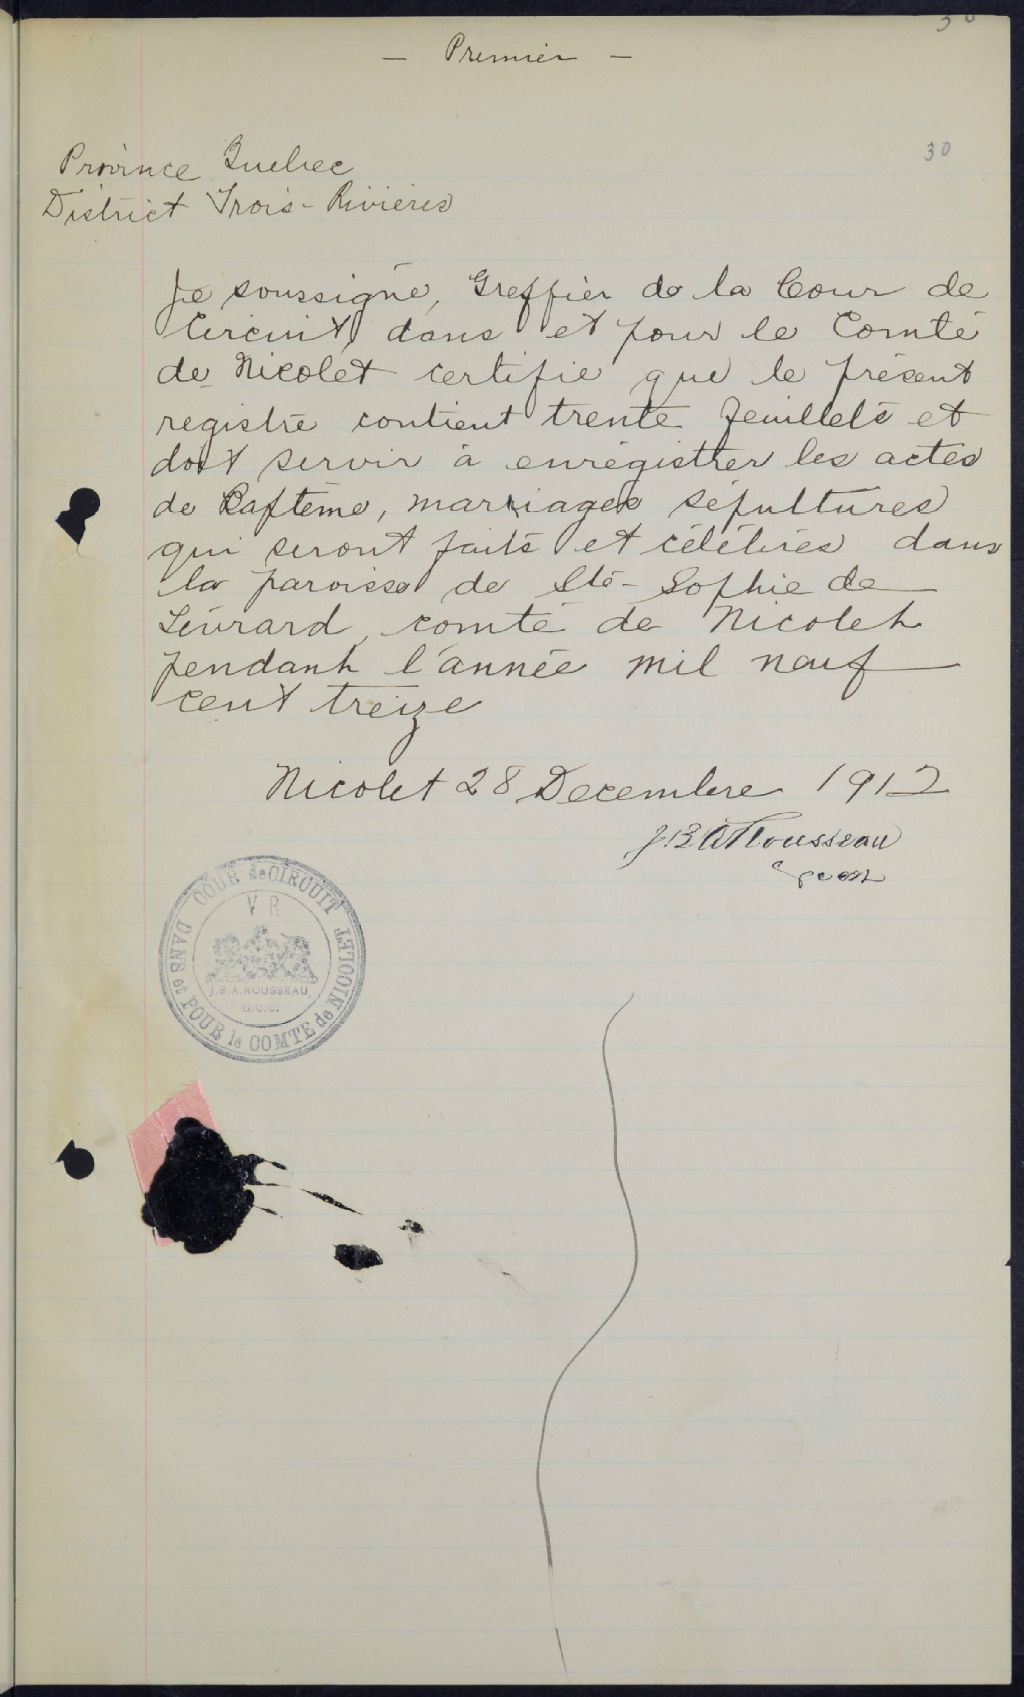 — Premier —
30
Province Quebec
District Trois-Rivières
Je soussigné, Greffier de la Cour de
Circuit, dans et pour le Comté
de Nicolet certifie que le présent
registre contient trente feuillets et
doit servir à enrégistrer les actes
de Baptême, mariages sépultures
qui seront faits et célébrés dans
la paroisse de Ste-Sophie de
Lévrard, comté de Nicolet
pendant l'année mil neuf
cent treize
Nicolet 28 Decembre 1912
J B A Rousseau
COUR de CIRCUIT
DANS et POUR le COMTE de NICOLET
V R
J.B.A. ROUSSEAU
G.C.C.